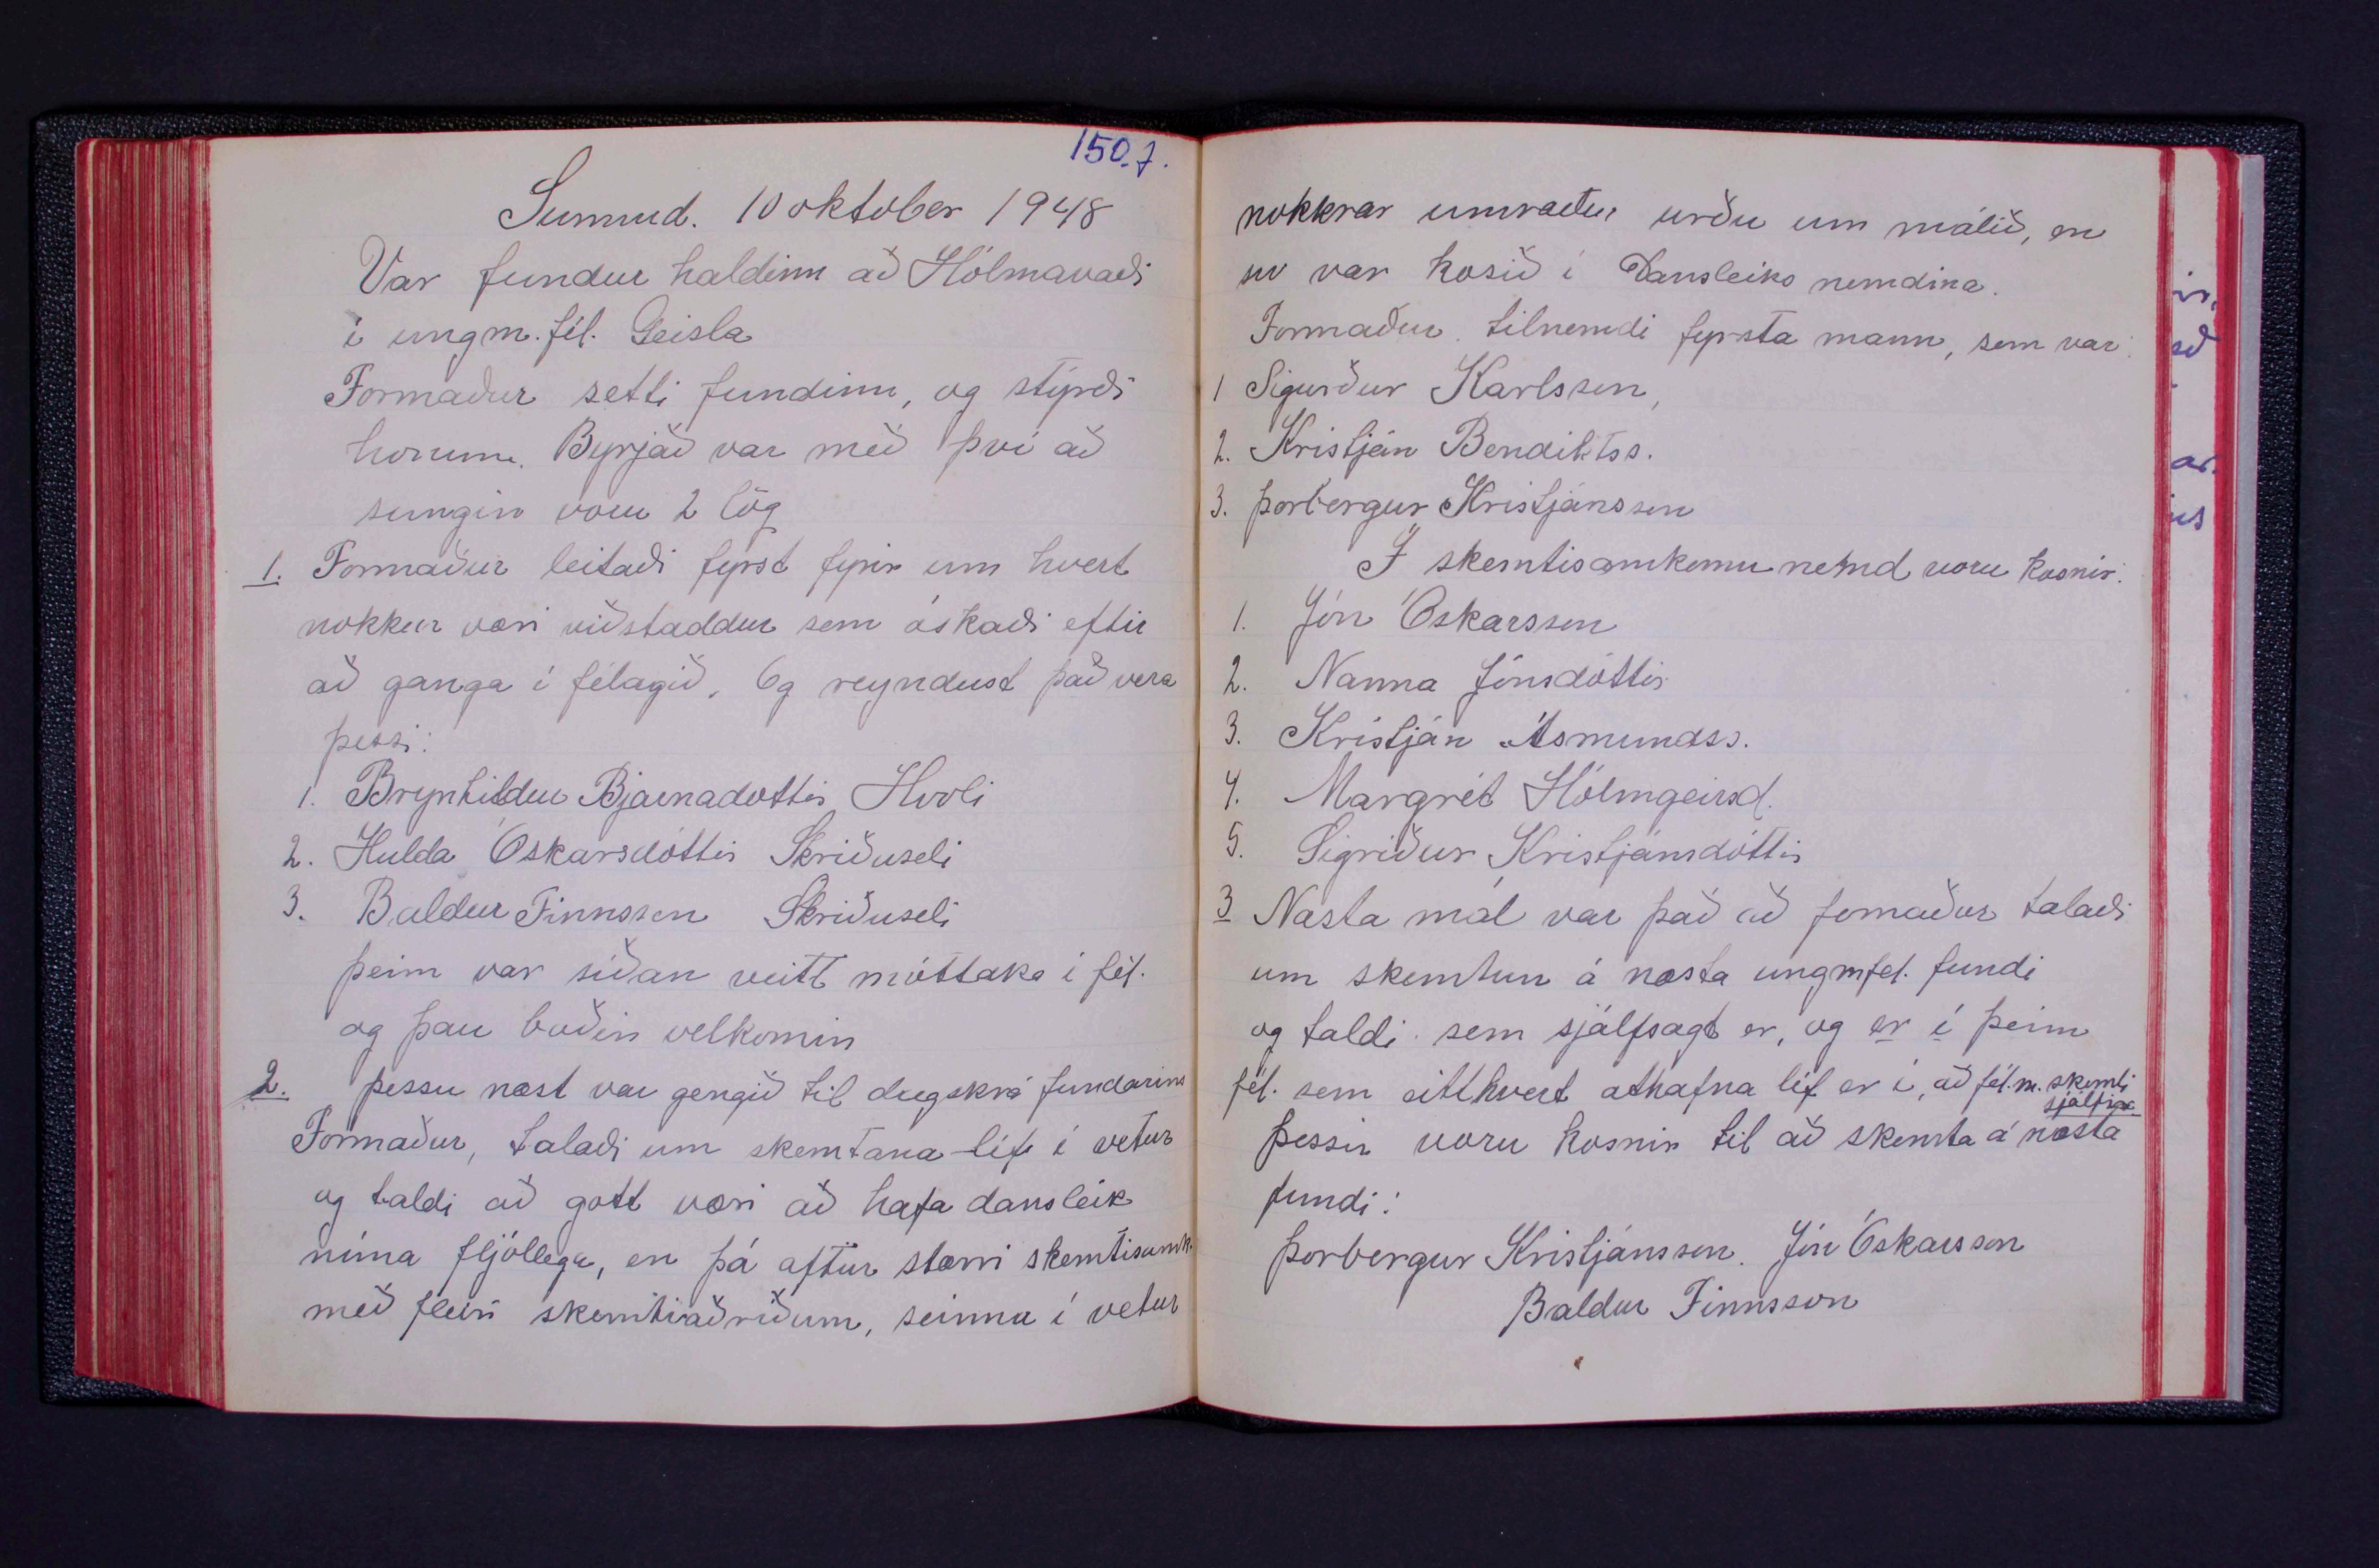 150. f.
Sunnud. 10 oktober 1948
Var fundur haldinn að Hólmavaði
í ungm. fél. Geisla
Formaður setti fundinn, og stýrði
honum. Byrjað var með því að
sungin voru 2 lög
1. Formaður leitaði fyrst fyrir um hvert
nokkur væri viðstaddur sem óskaði eftir
að ganga í félagið. Og reyndust það vera
þessi:
1. Brynhildur Bjarnadóttir Hvoli
2. Hulda Óskarsdóttir Skriðuseli
3. Baldur Finnsson Skriðuseli
þeim var síðan veitt móttaka í fél.
og þau boðin velkomin
2. þessu næst var gengið til dagskrá fundarins
Formaður, talaði um skemtana-líf í vetur
og taldi að gott væri að hafa dansleik
núna fljóllega, en þá aftur stærri skemtisamk.
með fleiri skemtiaðriðum, seinna í vetur
nokkrar umræður urðu um málið, en
sv var kosið í Dansleiks nemdina.
Formaður tilnemdi fyrsta mann, sem var:
1 Sigurður Karlsson,
2. Kristján Bendiktss.
3. Þorbergur Kristjánsson
Í skemtisamkomu nemd voru kosnir.
1. Jón Óskarsson
2. Nanna Jónsdóttir
3. Kristján Ásmundss.
4. Margrét Hólmgeirsd.
5. Sigríður Kristjánsdóttir
3 Næsta mál var það að fomaður talaði
um skemtun á næsta ungmfél. fundi
og taldi sem sjálfsagt er, og er í þeim
fél. sem eitthvert athafna líf er í, að fél.m. skemti
sjálfir
þessir voru kosnir til að skemta á næsta
fundi:
Þorbergur Kristjánsson. Jón Óskarsson
Baldur Finnsson